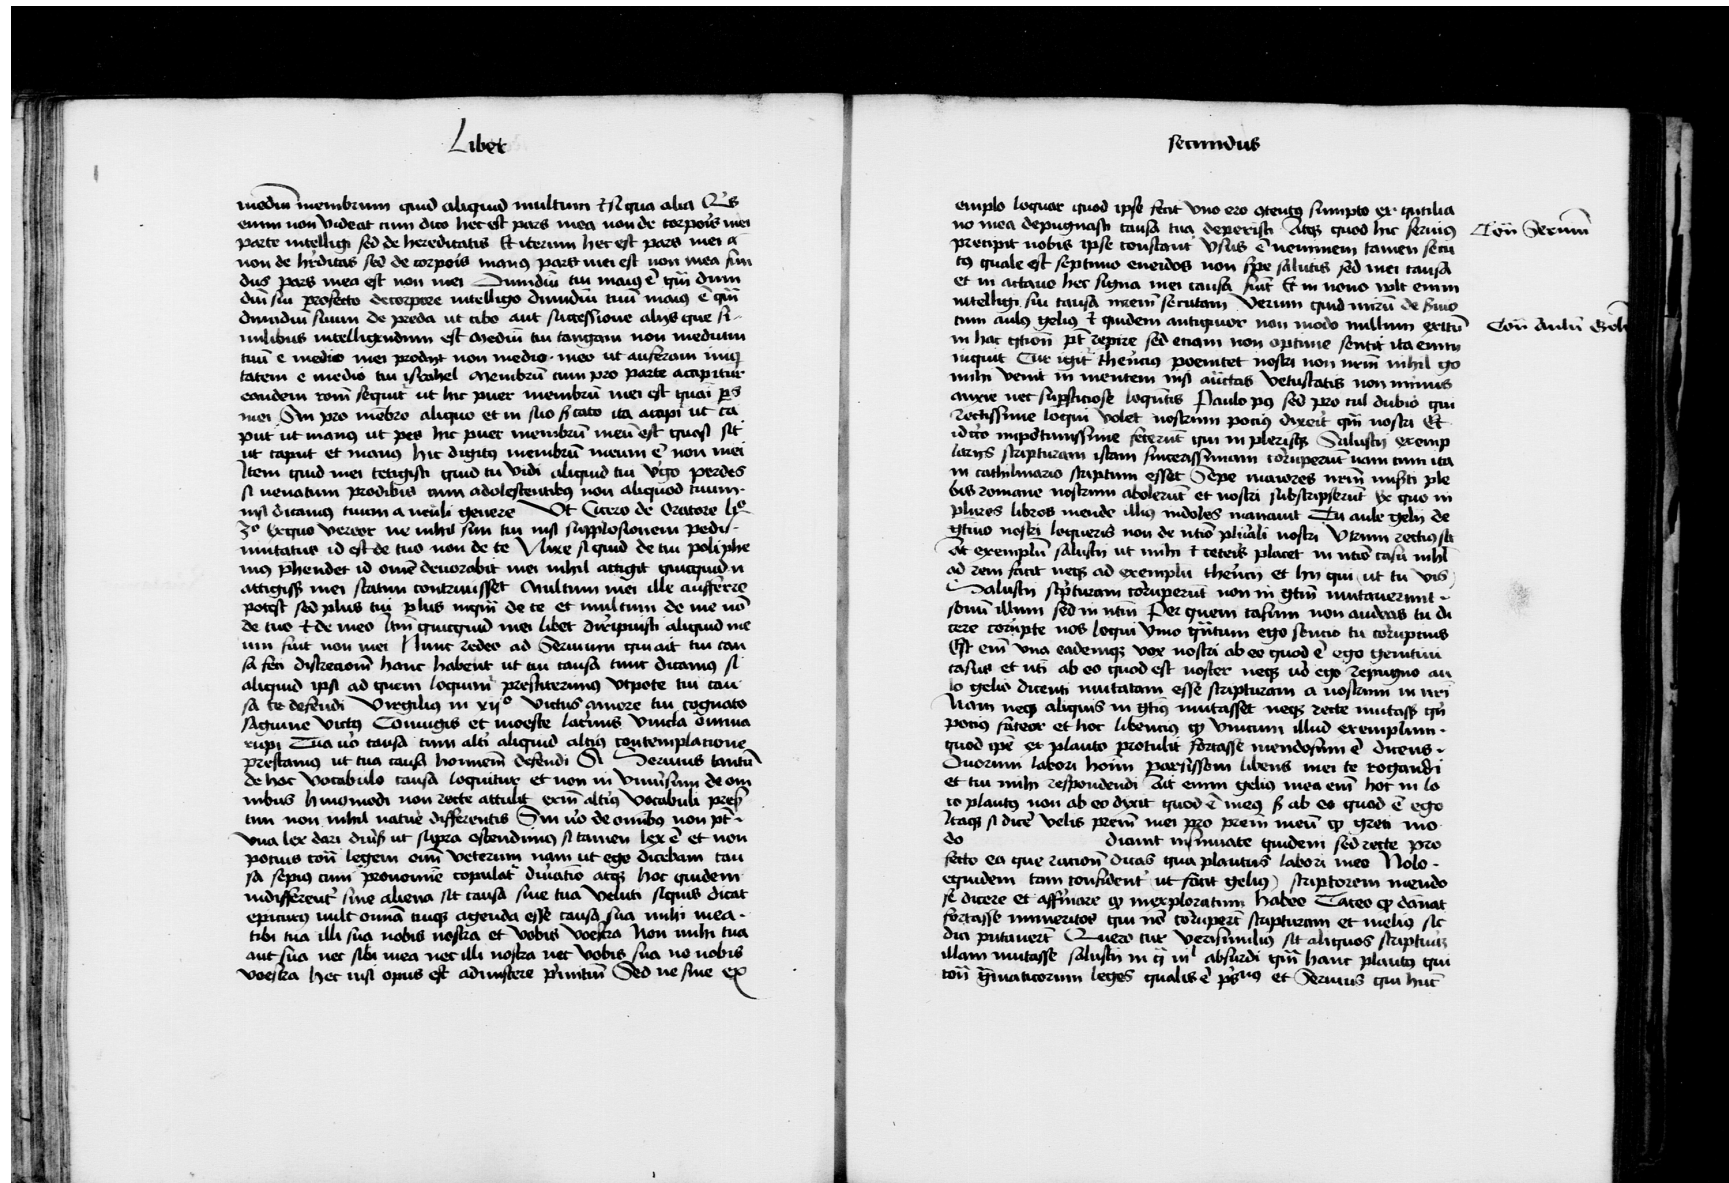 Liber
mediū membrum quid aliquid multum ⁊ siqua alia Q̇s
enim non videat cum dico hec est pars mea non de corpoīs mei
parte intelligi sed de hereditatis Et iterum hec est pars mei a
non de hr̄ditas sed de corpoīs manꝰ pars mei est non mea fun
dus pars mea est non mei Dimidiū tui maiꝰ ē qm̄ dum
diū sui profecto de corpore intelligo dimidiū tuū maiꝰ ē qm̄
dimidiū suum de preda ut cibo aut successione alijsque si-
milibus intelligendum est Mediū tui tangam non medium
tuū e medio mei prodijt non medio meo ut auferam iniq
tatem e medio tui israhel Membrū cum pro parte accipitur
eandem rōm sequit̄ ut hic puer membrū mei est quasi ps
mei Sin pro mēbro aliquo et in suo sicato ita accipi ut ca
put ut manꝰ ut pes hic puer membrū meū est quasi sit
ut caput et manꝰ hic digitꝰ membrū meum ē non mei
Item quid mei tetigisti quid tu vidi aliquid tui v̄go perdes
si uenatum prodibis cum adolescentibꝰ non aliquod tuum
nisi dicamus tuum a neūli genere Ut Cicero de Oratore lıͦ
3ͦ Ex quo vereor ne nihil sim tui nisi supplosionem pedis-
mutatus id est de tuo non de te Vlixe si quid de tui poliphe
mꝰ p̄hendet id omē deuorabit mei nihil attigit quicquid n
attigiss mei statim contriuisset Multum mei ille aufferre
potest sed plus tui plus inqm̄ de te et multum de me nō
de tuo ⁊ de meo Itm̄ quicquid mei libet diripuisti aliquid me
um fuit non mei Nunc redeo ad Seruium qui ait tui cau
sa feci discretionē hanc habent ut tui causa tunc dicamꝰ si
aliquid ipsi ad quem loquimr̄ prestiterimꝰ Utpote tui cau
sa te defendi Virgilius in xijͦ Victus amore tui cognato
sāguine victꝰ Coniugis et moeste lacrimis vincla omnia
rupi Tua v̄o causa cum alti aliquid altiꝰ contemplacione
prestamꝰ ut tua causa hominem defendi Si Seruius tantū
de hoc vocabulo causa loquitur et non in vniūsum de om
nibus huiꝰmodi non recte attulit exm̄ altiꝰ vocabuli pres̄
tim non nihil nature differentis Sin v̄o de omībꝰ non pt̄
vna lex dari diūs ut supra ostendimus si tamen lex ē et non
potius cōn legem oīm veterum nam ut ego dicebam cau
sa sepiꝰ cum pronomine copulat̄ diuatio atqꝫ hoc quidem
indifferent̄ siue aliena sit causa siue tua Veluti siquis dicat
epicurꝰ uult omnia eiꝰqꝫ agenda esse causa sua mihi mea
tibi tua illi sua nobis nostra et vobis voestra Non mihi tua
aut sua nec sibi mea nec illi nostra nec vobis sua nō nobis
voestra hec iusi opus est admistere p̄imtiū Sed ne sine ex
secundus
emplo loquar quod ipse fecit vno ero contentꝰ sumpto ex quitilia
no mea depugnasti causa tua deperisti Atqꝫ quod hic seruiꝰ
precipit nobis ipse constant vsus ē neminem tamen secu
tꝰ quale est septimo eneidos non spe salutis sed mei causa
et in octauo hec signa mei causa fuīt Et in nono uolt enim
intelligi sui causa mrēm secutam Verum quid mirū de suio
cum aulꝰ gelius ⁊ quidem antiquior non modo nullum exitū
in hac q̄tiōn pt̄ repire sed etiam non optime sentit ita enim
inquit Cur igit̄ the͛ncius poenitet nostri non nrm̄ nihil go
mihi venit in mentem nisi auctās vetustatis non nimis
anxie nec sup̄sticiose loqn̄tis Paulo pꝰ sed pro cul dubio qui
rectissime loqui volet nostrum pocius dixerit qm̄ nostri Et
idcirco inportunissime fecerunt qui in plerisqꝫ Salustij exemp
laribꝰ scripturam istam sincerissimam corruperūt nam cum ita
in cathilinario scriptum esset Sepe maiores nrm̄ mis̄ti ple
bis romane nostrum abolerunt et nostri subscripserunt Ex quo in
plures libros mende illiꝰ indoles manauit Tu aule gelij de
gt̄iuo nostri loqueris non de ntīo plurali nostri Vtrum rectiꝰ sit
āt exemplū salustij ut mihi ⁊ ceteris placet in ntīo casu nihil
ad rem facit neqꝫ ad exemplū the͛ncij et hij qui ut tu vis
Salustij sc̄pturam coruperunt non in gt̄m mutauerunt
sonū illum sed in ntm̄ Per quem casum non audeas tu di
cere corupte nos loqui Vmo qn̄tum ego sencio tu coruptius
Est em̄ vna eademqꝫ vox nostri ab eo quod ē ego genitiui
casus et nti ab eo quod est noster neqꝫ ud ego repugno au
lo gelio dicenti mutatam esse scripturam a nostrum in nrī
Nam neqꝫ aliquis in gt̄iꝰ mutasset neqꝫ recte mutass qn̄
pociꝰ fateor et hoc libencius qꝫ vnicum illud exemplum
quod ipē ex plauto protulit fortasse mendosum ē dicens
Duorum labori hoīm parsissem libens mei te rogandi
et tui mihi respondendi Ait enim gelius mea em̄ hoc in lo
co plautꝰ non ab eo dixit quod ē meꝰ sꝫ ab eo quod ē ego
Itaqꝫ si dicē velis prēm mei pro prēm meū qꝫ greci mo
do dicunt insinuate quidem sed recte pro
fecto ea que racionē duas qua plautus labori meo Nolo
equidem tam confident̄ ut facit gelius scriptorem mendo
se dicere et affirmare qꝫ inexploratum habeo Taceo qꝫ dānat
fortasse inmeritos qui nō coruper̄t scripturam et meliꝰ sic
dici putauer̄t Quero cur verisimiliꝰ sit aliquos scripturā
illam mutasse salustij in qꝫ nil absurdi qm̄ hanc plautꝰ qui
cōn gr̄maticorum leges qualis ē p̄sꝰ et Seruius qui hūc
Cōn Seruiū
Con̄ Aulū Gelī